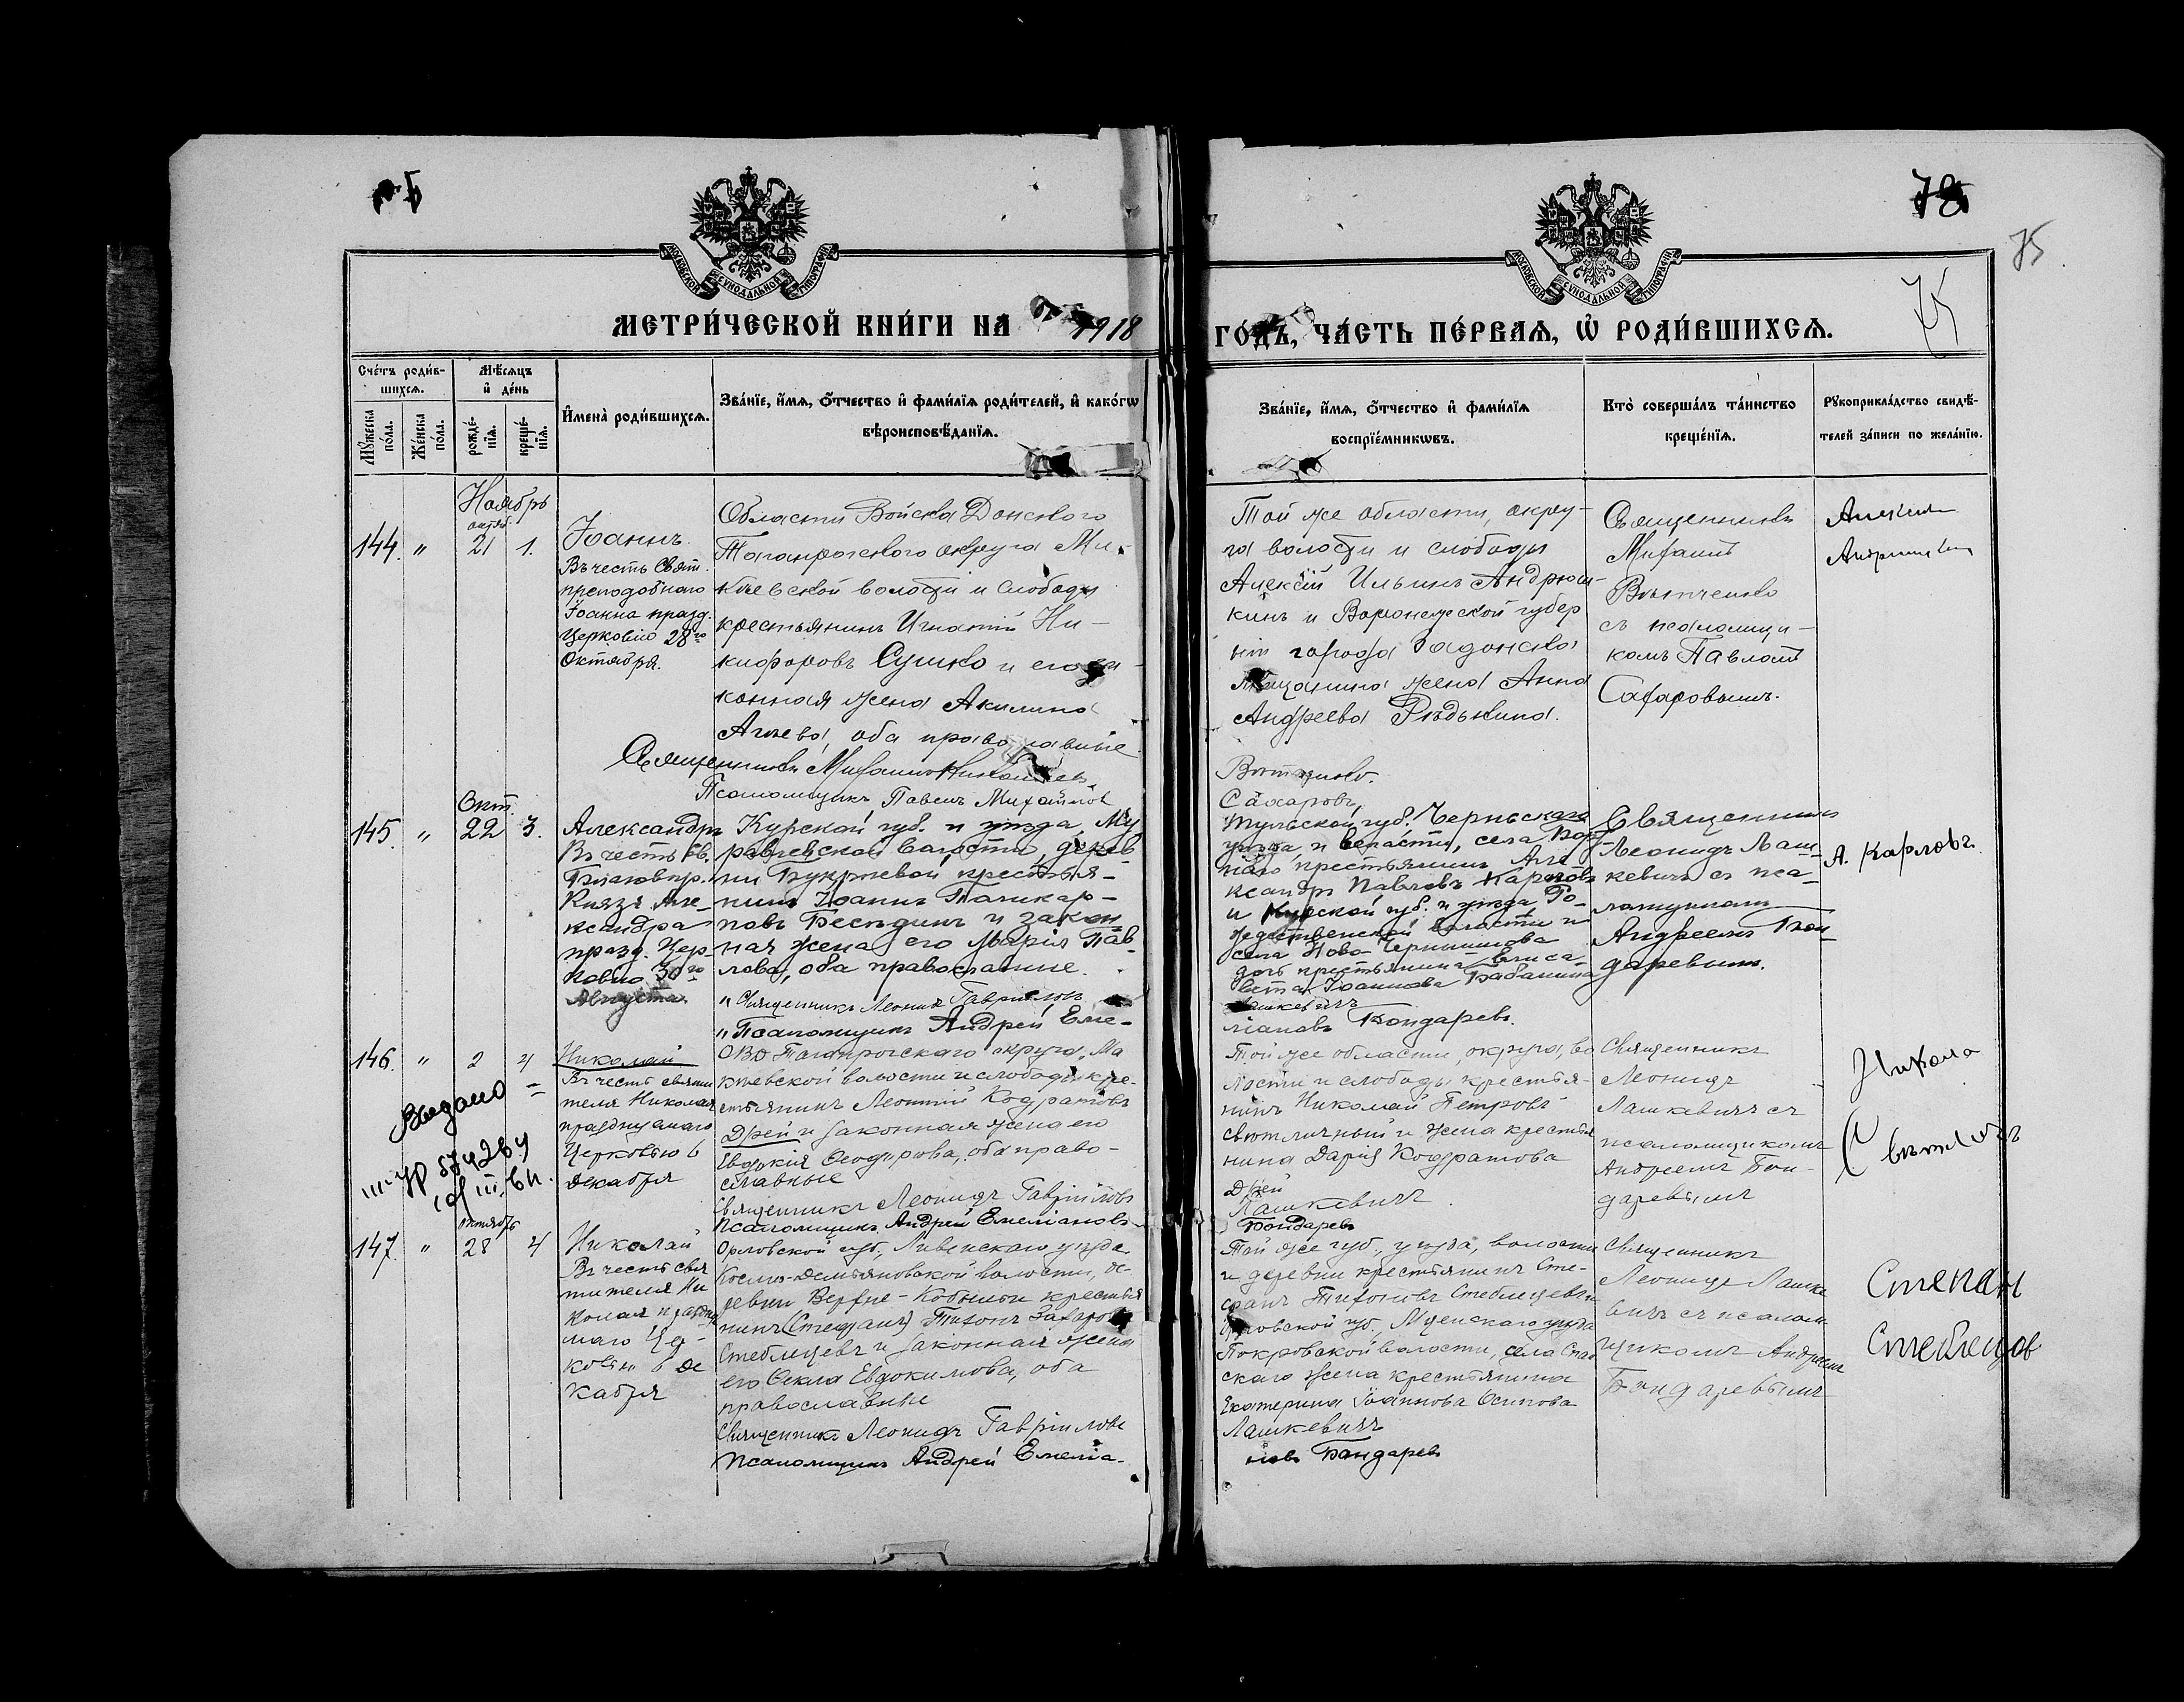 75
78
75
75
МОСКОВСКОЙ СѴНОДАЛЬНОЙ ТИПОГРАФІИ
МОСКОВСКОЙ СѴНОДАЛЬНОЙ ТИПОГРАФІИ
МЕТРИ́ЧЕСКОЙ КНИ́ГИ НА 1918
ГО́ДЪ, ЧА́СТЬ ПЕ́РВАЯ, Ѡ҆ РОДИ́ВШИХСѦ.
Сче́тъ роди́в-
шихсѧ.
Мꙋ́жеска по́ла.
Же́нска по́ла.
Мѣ́сѧцъ
и҆ де́нь
рожде́-
нїѧ.
креще́-
нїѧ.
И҆мена̀ роди́вшихсѧ.
Зва́нїе, и҆́мѧ, ѻ҆́тчество и҆ фами́лїѧ роди́телей, и҆ како́гѡ
вѣроисповѣ́данїѧ.
Зва́нїе, и҆́мѧ, ѻ҆́тчество и҆ фами́лїѧ
воспрїе́мникѡвъ.
Кто̀ соверша́лъ та́инство
креще́нїѧ.
Рꙋкоприкла́дство свидѣ́-
телей за́писи по жела́нїю.
Ноябрь
октяб.
144. " 21 1.
Іоаннъ.
Въ честь Свят.
преподобнаго
Іоанна празд.
Церковію 28го
Октября.
Области Войска Донского
Таганрогского округа Ма-
кѣевской волости и слободы
крестьянинъ Игнатій Ни-
кифоровъ Сушко и его за-
конная жена Акилина
Агѣева, оба православные
Священникъ Михаилъ Николаевъ
Псаломщикъ Павелъ Михайлов
Той же области, окру-
га волости и слободы
Алексѣй Ильинъ Андрюш-
кинъ и Воронежской губер
ніи города Задонска
мѣщанина жена Анна
Андреева Рѣдькина.
Сахаровъ,
Священникъ
Михаилъ
съ псаломщи-
комъ Павломъ
Сахаровымъ.
Окт.
145. " 22 3.
Александръ
Въ честь Св.
Благов. пр.
Князя Але-
ксандра
празд. Цер-
ковію 30го
Августа.
Курской губ. и уѣзда, Му
равлевской волости, дерев
ни Букрѣевой крестья-
нинъ Іоаннъ Поликар-
повъ Бесѣдинъ и закон
ная жена его Марія Пав-
лова, оба православные.
"Священникъ Леонидъ Гавріиловъ
"Псаломщикъ Андрей Еме-
Тульской губ. Чернскаго
уѣзда и волости, села
крестьянинъ Але
ксандръ Павловъ Карповъ
и Курской губ. и уѣзда Ро-
ждественской волости и
села Ново-
дочь крестьянина Елиса-
вета Іоаннова Бабанина
Лашкевичъ
ліановъ Бондаревъ.
Священникъ
Леонидъ Лаш-
кевичъ съ пса-
ломщикомъ
Андреемъ Бон-
даревымъ.
А. Карповъ
146. " 2 4
Николай
Въ честь святи
теля Николая
празднуемаго
Церковью 6
декабря
Выдано
ОВД Таганрогскаго округа, Ма
кѣевской волости и слободы кре-
стьянинъ Леонтій Кодратовъ
Дрей и законная жена его
Евдокія Ѳеодорова, оба право-
славные
Священникъ Леонидъ Гавріиловъ
Псаломщикъ Андрей Емеліановъ
Той же области, округа, во
лости и слободы крестья-
нинъ Николай Петровъ
Свѣтличный и жена крестья
нина Дарія Кодратова
Дрей
Лашкевичъ
Бондаревъ
Священникъ
Леонидъ
Лашкевичъ съ
псаломщикомъ
Андреемъ Бон-
даревымъ
Никола
октябрь
147. " 28 4
Николай
Въ честь свя
тителя Ни
колая праздну
маго Цер-
ковью 6 де
кабря
Орловской губ., Ливенскаго уѣзда
Космо-Демьяновской волости, де-
ревни Верхне-Кобылки крестья
нинъ (Стефанъ) Тихонъ Захаров
Стеблецевъ и законная жена
его Ѳекла Евдокимова, оба
православные
Священникъ Леонидъ Гавріилове
Псаломщикъ Андрей Емеліа-
Той же губ., уѣзда, волости
и деревни крестьянинъ Сте-
фанъ Тихоновъ Стеблецевъ и
Орловской губ., Мценскаго уѣзда
Покровской волости, села Спас
скаго жена крестьянина
Екатерина Іоаннова Осипова
Лашкевичъ
новъ Бондаревъ
Священникъ
Леонидъ Лашке
вичъ съ псалом
щикомъ Андреемъ
Бондаревымъ
Степан
Стеблецов